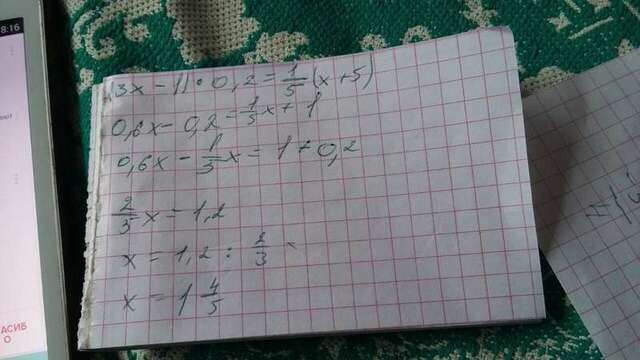 8:16
(3x - 1) · 0,2 = 1/5 (x + 5)
0,6x - 0,2 = 1/5 x + 1
0,6x - 1/5 x = 1 + 0,2
2/5 x = 1,2
x = 1,2 : 2/3
x = 1 4/5
АСИБ
О